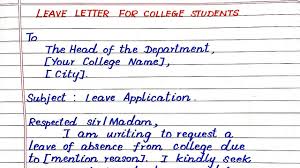 LEAVE LETTER FOR COLLEGE STUDENTS
To
The Head of the Department,
[Your College Name],
[City].
Subject : Leave Application.
Respected sir/Madam,
I am writing to request a
leave of absence from college due
to [mention reason]. I kindly seek